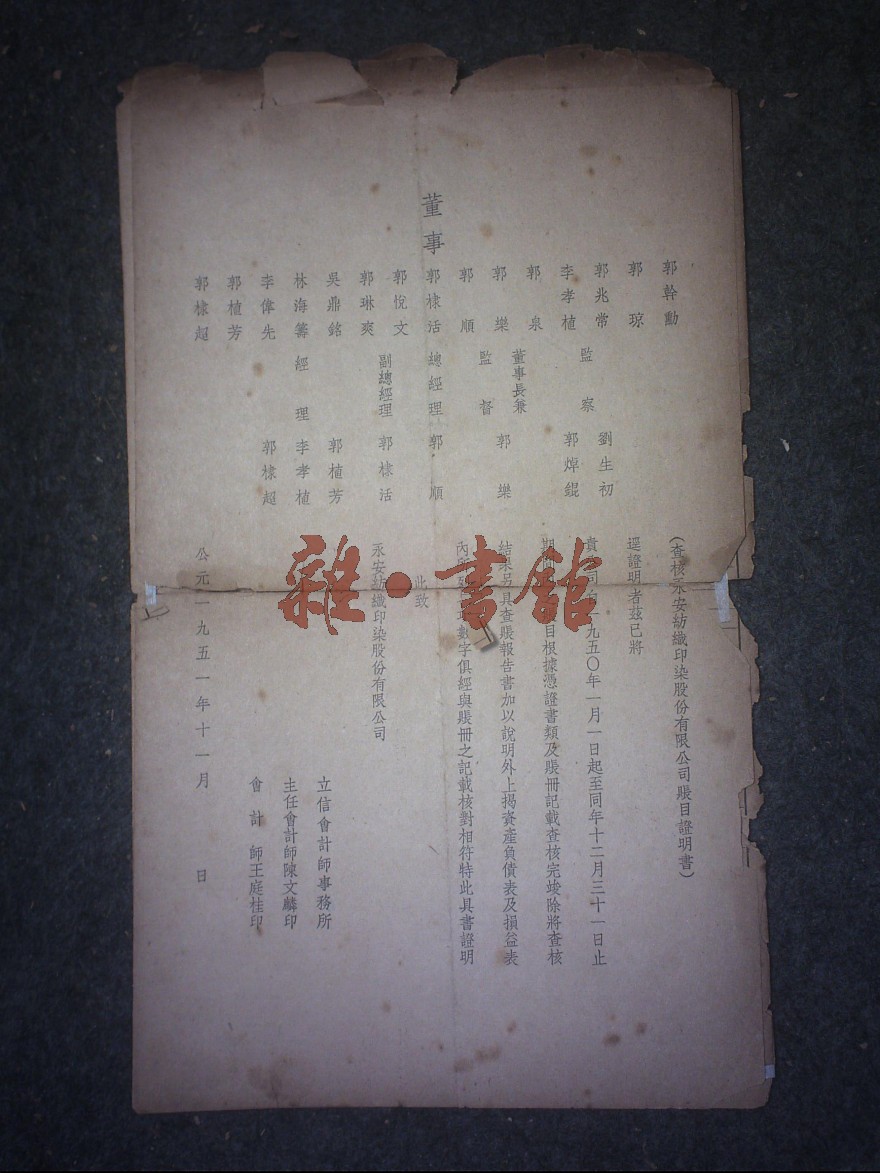 董事
郭幹勳
郭 琼
郭兆常
李孝植
郭 泉
郭 樂
郭 順
郭棣活
郭悅文
郭琳爽
吳鼎銘
林海籌
李偉先
郭植芳
郭棣超
監 察 劉生初
郭焯錕
董事長兼
監 督 郭 樂
總經理 郭 順
副總經理 郭棣活
經 理 郭植芳
李孝植
郭棣超
(查核永安紡織印染股份有限公司賬目證明書)
逕證明者茲已將
貴 司 九五〇年一月一日起至同年十二月三十一日止
期 目根據憑證書類及賬冊記載查核完竣除將查核
結果另具查賬報告書加以說明外上揭資產負債表及損益表
內 數字俱經與賬冊之記載核對相符特此具書證明
此致
永安紡織印染股份有限公司
立信會計師事務所
主任會計師陳文麟印
會計師王庭桂印
公元一九五一年十一月 日
雜·書館